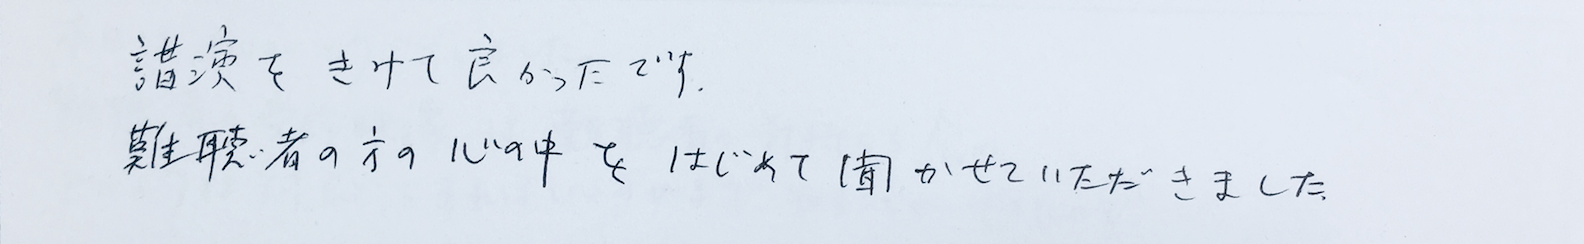 講演をきけて良かったです。
難聴者の方の心の中をはじめて聞かせていただきました。